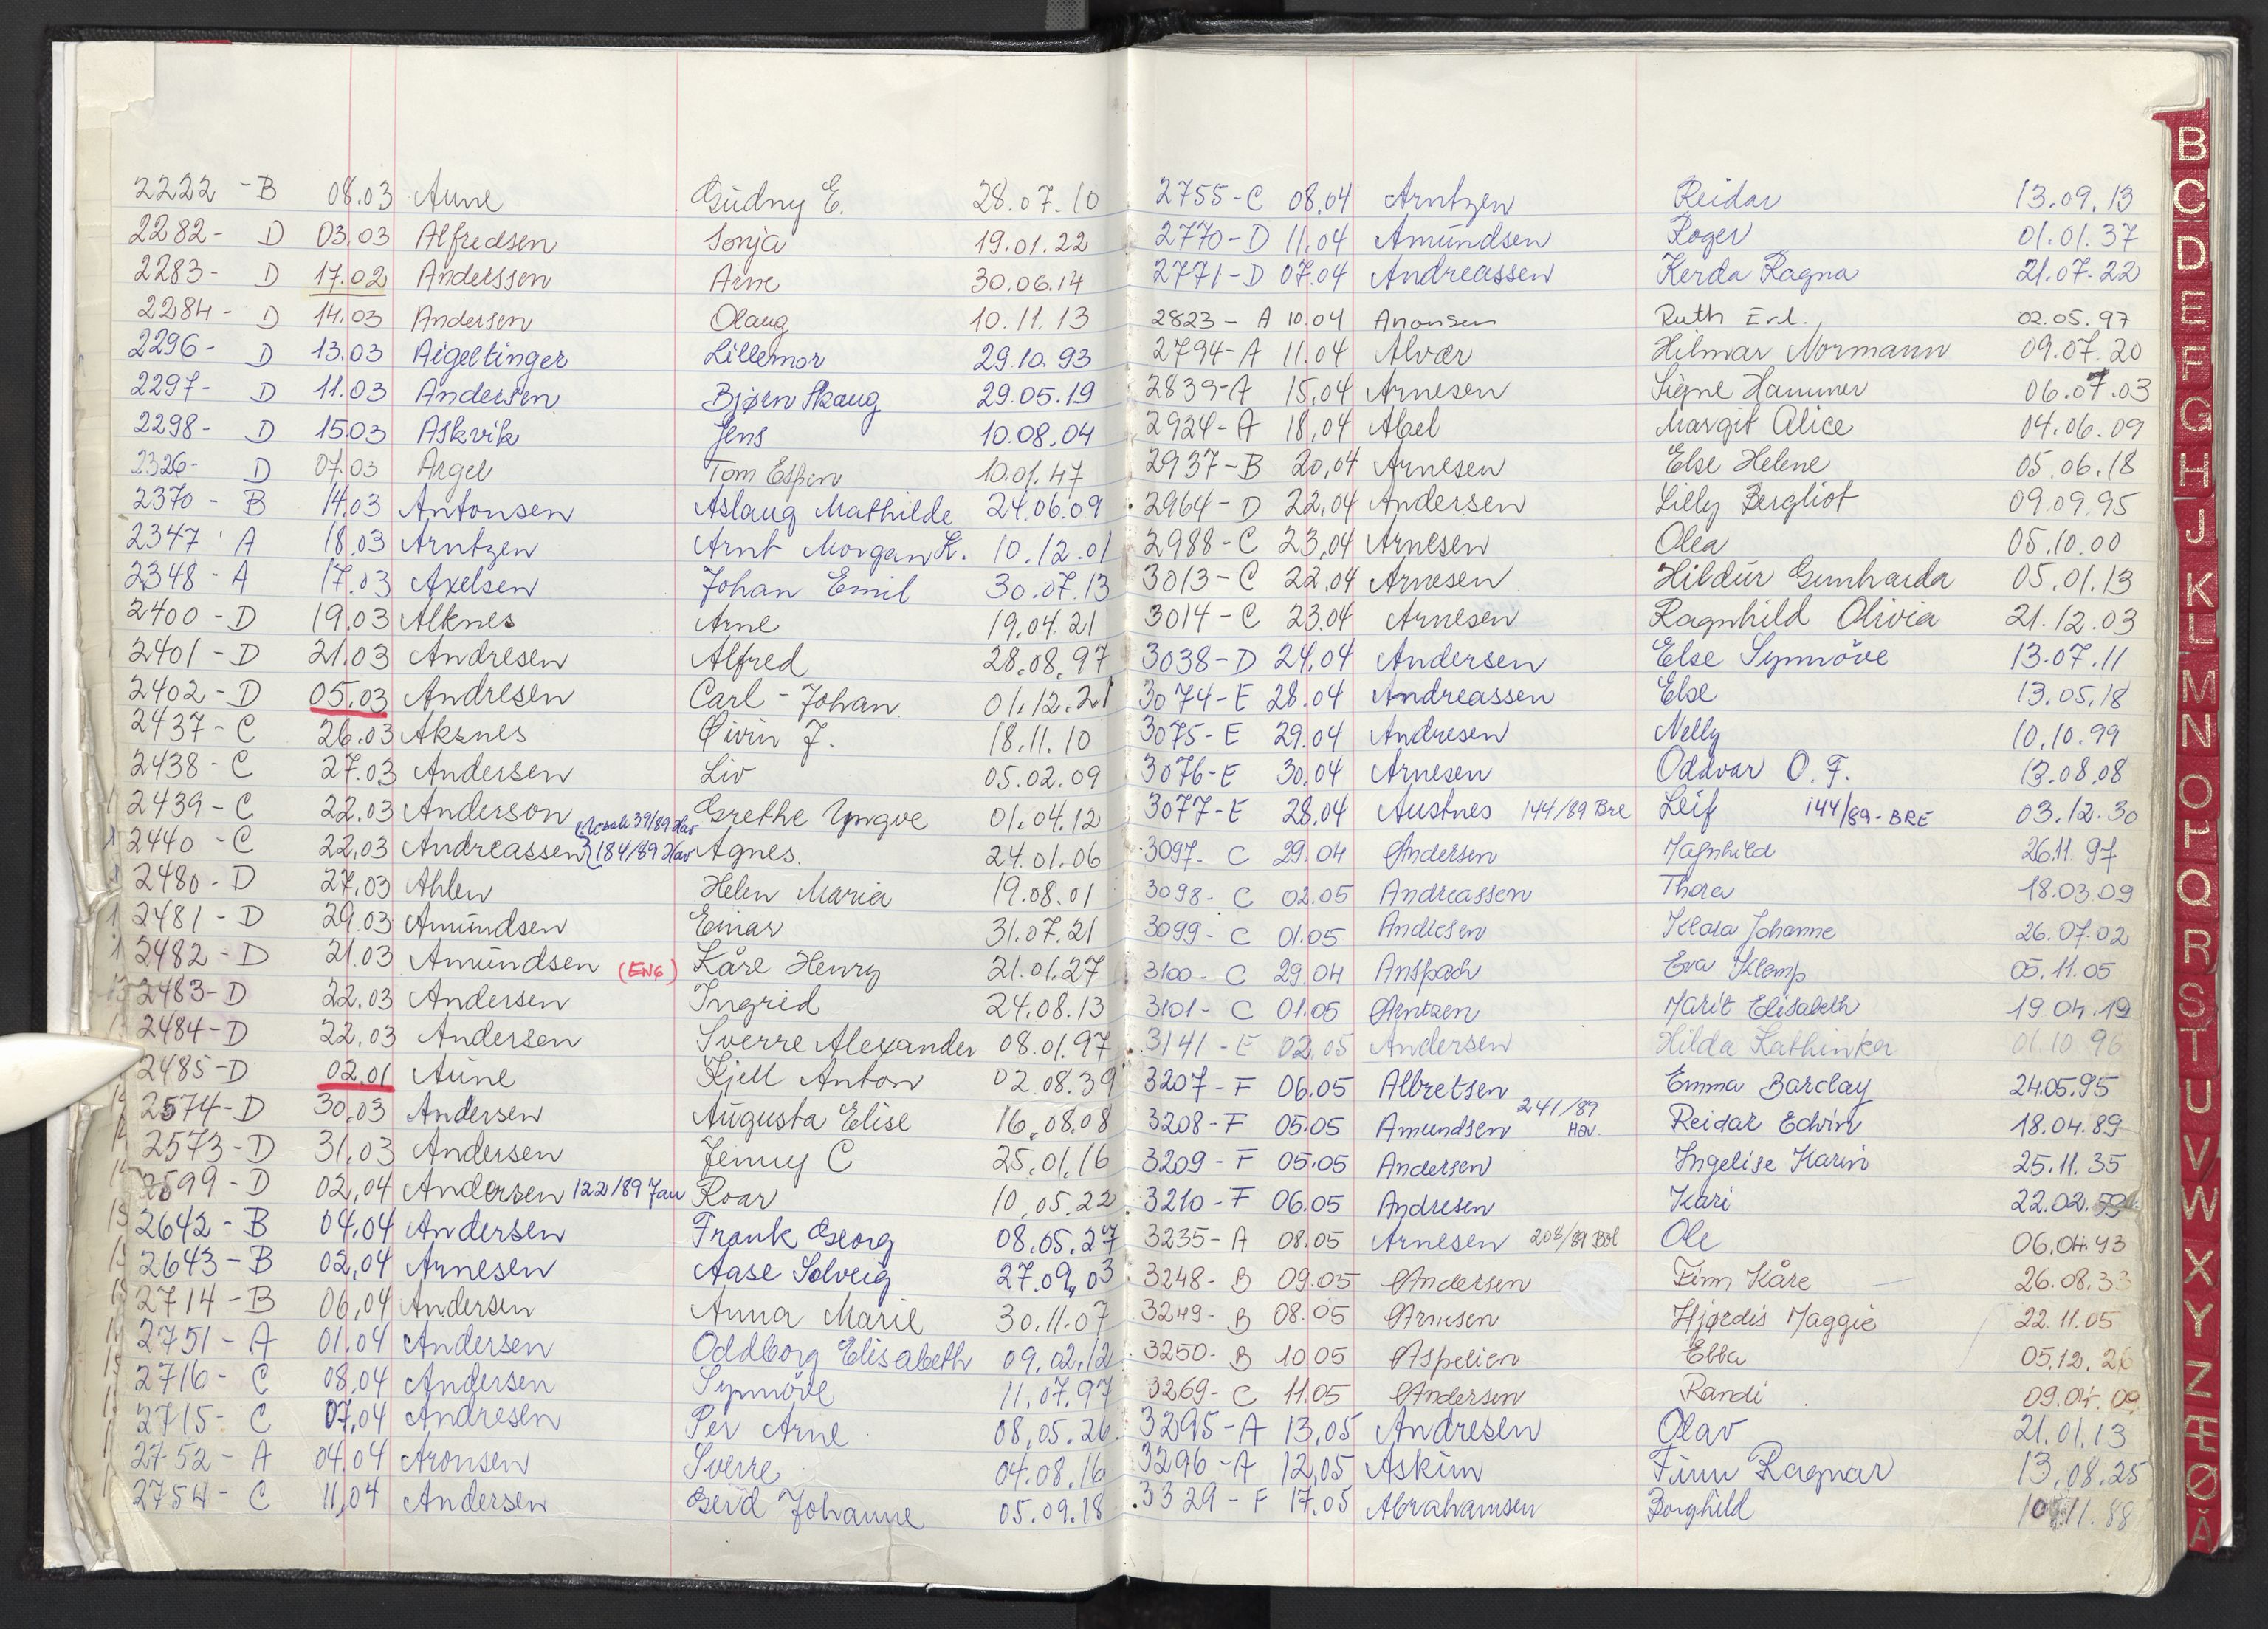 2222 - B 08.03 Aune Gudny E. 28.07.10
2282 - D 03.03 Alfredsen Sonja 19.01.22
2283 - D 17.02 Anderssen Arne 30.06.14
2284 - D 14.03 Andersen Olaug 10.11.13
2296 - D 13.03 Aigeltinger Lillemor 29.10.93
2297 - D 11.03 Andersen Bjørn Skaug 29.05.19
2298 - D 15.03 Askvik Jens 10.08.04
2326 - D 07.03 Argel Tom Espen 10.01.47
2370 - B 14.03 Antonsen Aslaug Mathilde 24.06.09
2347 - A 18.03 Arntzen Arnt Morgan K. 10.12.01
2348 - A 17.03 Axelsen Johan Emil 30.07.13
2400 - D 19.03 Alknes Arne 19.04.21
2401 - D 21.03 Andresen Alfred 28.08.97
2402 - D 05.03 Andresen Carl - Johan 01.12.21
2437 - C 26.03 Aksnes Øivin J. 18.11.10
2438 - C 27.03 Andersen Liv 05.02.09
2439 - C 22.03 Anderson Grethe Yngve 01.04.12
39/89 Hav
2440 - C 22.03 Andreassen (184/89 Hav Agnes. 24.01.06
2480 - D 27.03 Ahlen Helen Maria 19.08.01
2481 - D 29.03 Amundsen Einar 31.07.21
2482 - D 21.03 Amundsen (ENG) Kåre Henry 21.01.27
2483 - D 22.03 Andersen Ingrid 24.08.13
2484 - D 22.03 Andersen Sverre Alexander 08.01.97
2485 - D 02.01 Aune Kjell Anton 02.08.39
2574 - D 30.03 Andersen Augusta Elise 16.08.08
2573 - D 31.03 Andersen Jenny C 25.01.16
2599 - D 02.04 Andersen 122/89 Jan Roar 10.05.22
2642 - B 04.04 Andersen Frank Georg 08.05.27
2643 - B 02.04 Arnesen Aase Solveig 27.09.03
2714 - B 06.04 Andersen Anna Marie 30.11.07
2751 - A 01.04 Andersen Oddborg Elisabeth 09.02.12
2716 - C 08.04 Andersen Synnöve 11.07.97
2715 - C 07.04 Andresen Per Arne 08.05.26
2752 - A 04.04 Aronsen Sverre 04.08.16
2754 - C 11.04 Andersen Gerd Johanne 05.09.18
2755 - C 08.04 Arntzen Reidar 13.09.13
2770 - D 11.04 Amundsen Roger 01.01.37
2771 - D 07.04 Andreassen Kerda Ragna 21.07.22
2823 - A 10.04 Aronsen Ruth 02.05.97
2794 - A 11.04 Alvær Hilmar Normann 09.07.20
2839 - A 15.04 Arnesen Signe Hammer 06.07.03
2924 - A 18.04 Abel Margit Alice 04.06.09
2937 - B 20.04 Arnesen Else Helene 05.06.18
2964 - D 22.04 Andersen Lilly Bergliot 09.09.95
2988 - C 23.04 Arnesen Olea 05.10.00
3013 - C 22.04 Arnesen Hildur Gunharda 05.01.13
3014 - C 23.04 Arnesen Ragnhild Olivia 21.12.03
3038 - D 24.04 Andersen Else Synnöve 13.07.11
3074 - E 28.04 Andreassen Else 13.05.18
3075 - E 29.04 Andresen Nelly 10.10.99
3076 - E 30.04 Arnesen Oddvar O. F. 13.08.08
3077 - E 28.04 Austnes 144/89 Bre Leif 144/89 - BRE 03.12.30
3097 - C 29.04 Andersen Magnhild 26.11.97
3098 - C 02.05 Andreassen Thora 18.03.09
3099 - C 01.05 Andresen Klara Johanne 26.07.02
3100 - C 29.04 Anspach Eva Klemp 05.11.05
3101 - C 01.05 Arntzen Marit Elisabeth 19.04.19
3141 - E 02.05 Andersen Hilda Kathinka 01.10.96
3207 - F 06.05 Albretsen Emma Barclay 24.05.95
3208 - F 05.05 Amundsen 241/89 Hav. Reidar Edvin 18.04.89
3209 - F 05.05 Andersen Ingelise Karin 25.11.35
3210 - F 06.05 Andresen Kari 22.02.
3235 - A 08.05 Arnesen 208/89 Bol Ole 06.04.93
3248 - B 09.05 Andersen Finn Kåre 26.08.33
3249 - B 08.05 Arnesen Hjørdis Maggie 22.11.05
3250 - B 10.05 Aspelien Ebba 05.12.26
3269 - C 11.05 Andersen Randi 09.04.09
3295 - A 13.05 Andresen Olav 21.01.13
3296 - A 12.05 Askim Finn Ragnar 13.08.25
3329 - F 17.05 Abrahamsen Borghild 11.88
B
C
D
E
F
G
H
J
K
L
M
N
O
P
Q
R
S
T
U
V
W
X
Y
Z
Æ
Ø
Å